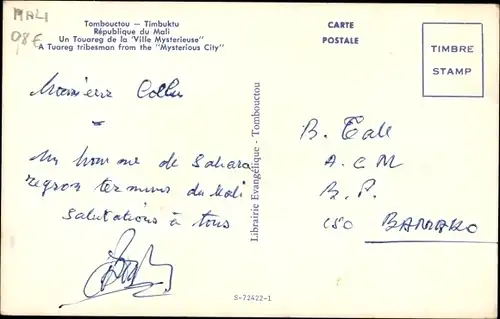 MALI
98 €
Tombouctou — Timbuktu
République du Mali
Un Touareg de la "Ville Mysterieuse"
A Tuareg tribesman from the "Mysterious City"
CARTE
POSTALE
TIMBRE
STAMP
Monsieur
Un homme de Sahara
du Mali
Salutations à tous
Librairie Evangélique - Tombouctou
B. Tall
A. C M
B. P.
150 BAMAKO
S-72422-1